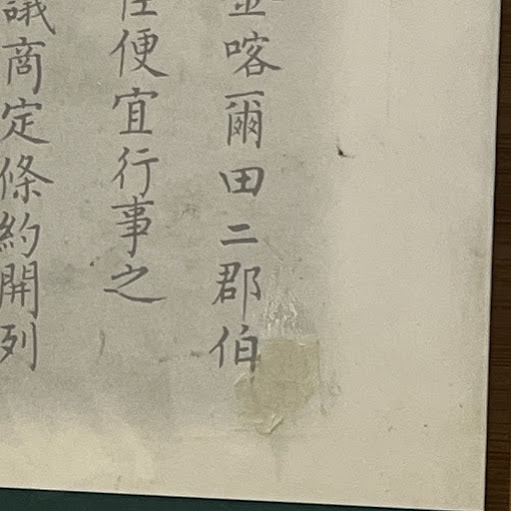 喀爾田二郡伯
便宜行事之
議商定條約開列